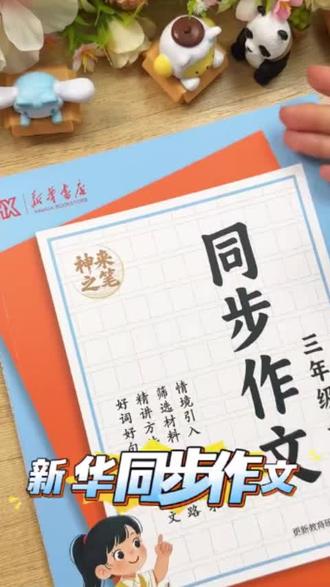 新华书店
XINHUA BOOKSTORE
神来
之笔
同步作文
三年级
情境引入
筛选材料
精讲方
好词好句
新华同步作文
文路
更新教育研